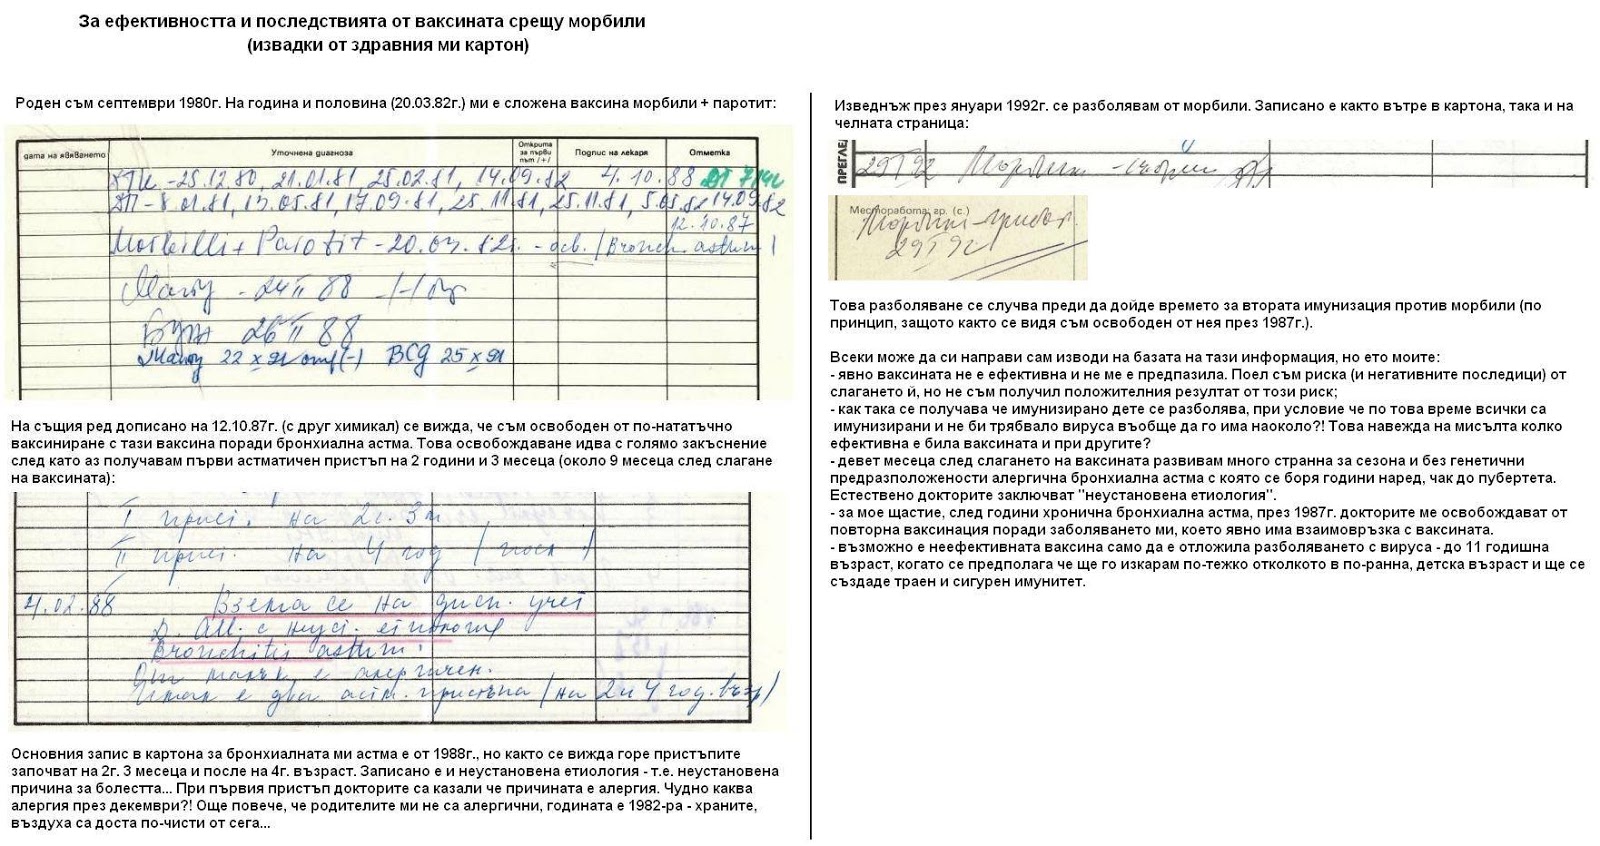 За ефективността и последствията от ваксината срещу морбили
(извадки от здравния ми картон)
Роден съм септември 1980г. На година и половина (20.03.82г.) ми е сложена ваксина морбили + паротит:
дата на явяването
Уточнена диагноза
Открита
за първи
път /+/
Подпис на лекаря
Отметка
25.12.80, 21.01.81 25.02.81, 14.09.82 4.10.88
ДП - 8.01.81, 13.05.81, 17.09.81, 25.11.81, 25.11.81, 5.05.82 14.09.82
12.10.87
Morbilli + Parotit - 20.03.82г. - осв. (Bronch. asthm)
Манту - 24 II 88 (-)
БЦЖ 26 II 88
Манту 22 X 91 отр (-) ВСД 25 X 91
На същия ред дописано на 12.10.87г. (с друг химикал) се вижда, че съм освободен от по-нататъчно
ваксиниране с тази ваксина поради бронхиална астма. Това освобождаване идва с голямо закъснение
след като аз получавам първи астматичен пристъп на 2 години и 3 месеца (около 9 месеца след слагане
на ваксината):
I прист. на 2г. 3м
II прист. на 4 год
4.02.88 Взема се на дисп. учет
D. с неуст. етиология
Bronchitis asthm.
От малък е алергичен.
Имал е два аст. пристъпа (на 2 и 4 год. възр)
Основния запис в картона за бронхиалната ми астма е от 1988г., но както се вижда горе пристъпите
започват на 2г. 3 месеца и после на 4г. възраст. Записано е и неустановена етиология - т.е. неустановена
причина за болестта... При първия пристъп докторите са казали че причината е алергия. Чудно каква
алергия през декември?! Още повече, че родителите ми не са алергични, годината е 1982-ра - храните,
въздуха са доста по-чисти от сега...
Изведнъж през януари 1992г. се разболявам от морбили. Записано е както вътре в картона, така и на
челната страница:
ПРЕГЛЕ
29 I 92 Морбили
Месторабота, гр. (с.)
Морбили
29 I 92
Това разболяване се случва преди да дойде времето за втората имунизация против морбили (по
принцип, защото както се видя съм освободен от нея през 1987г.).
Всеки може да си направи сам изводи на базата на тази информация, но ето моите:
- явно ваксината не е ефективна и не ме е предпазила. Поел съм риска (и негативните последици) от
слагането ѝ, но не съм получил положителния резултат от този риск;
- как така се получава че имунизирано дете се разболява, при условие че по това време всички са
имунизирани и не би трябвало вируса въобще да го има наоколо?! Това навежда на мисълта колко
ефективна е била ваксината и при другите?
- девет месеца след слагането на ваксината развивам много странна за сезона и без генетични
предразположености алергична бронхиална астма с която се боря години наред, чак до пубертета.
Естествено докторите заключват "неустановена етиология".
- за мое щастие, след години хронична бронхиална астма, през 1987г. докторите ме освобождават от
повторна ваксинация поради заболяването ми, което явно има взаимовръзка с ваксината.
- възможно е неефективната ваксина само да е отложила разболяването с вируса - до 11 годишна
възраст, когато се предполага че ще го изкарам по-тежко отколкото в по-ранна, детска възраст и ще се
създаде траен и сигурен имунитет.